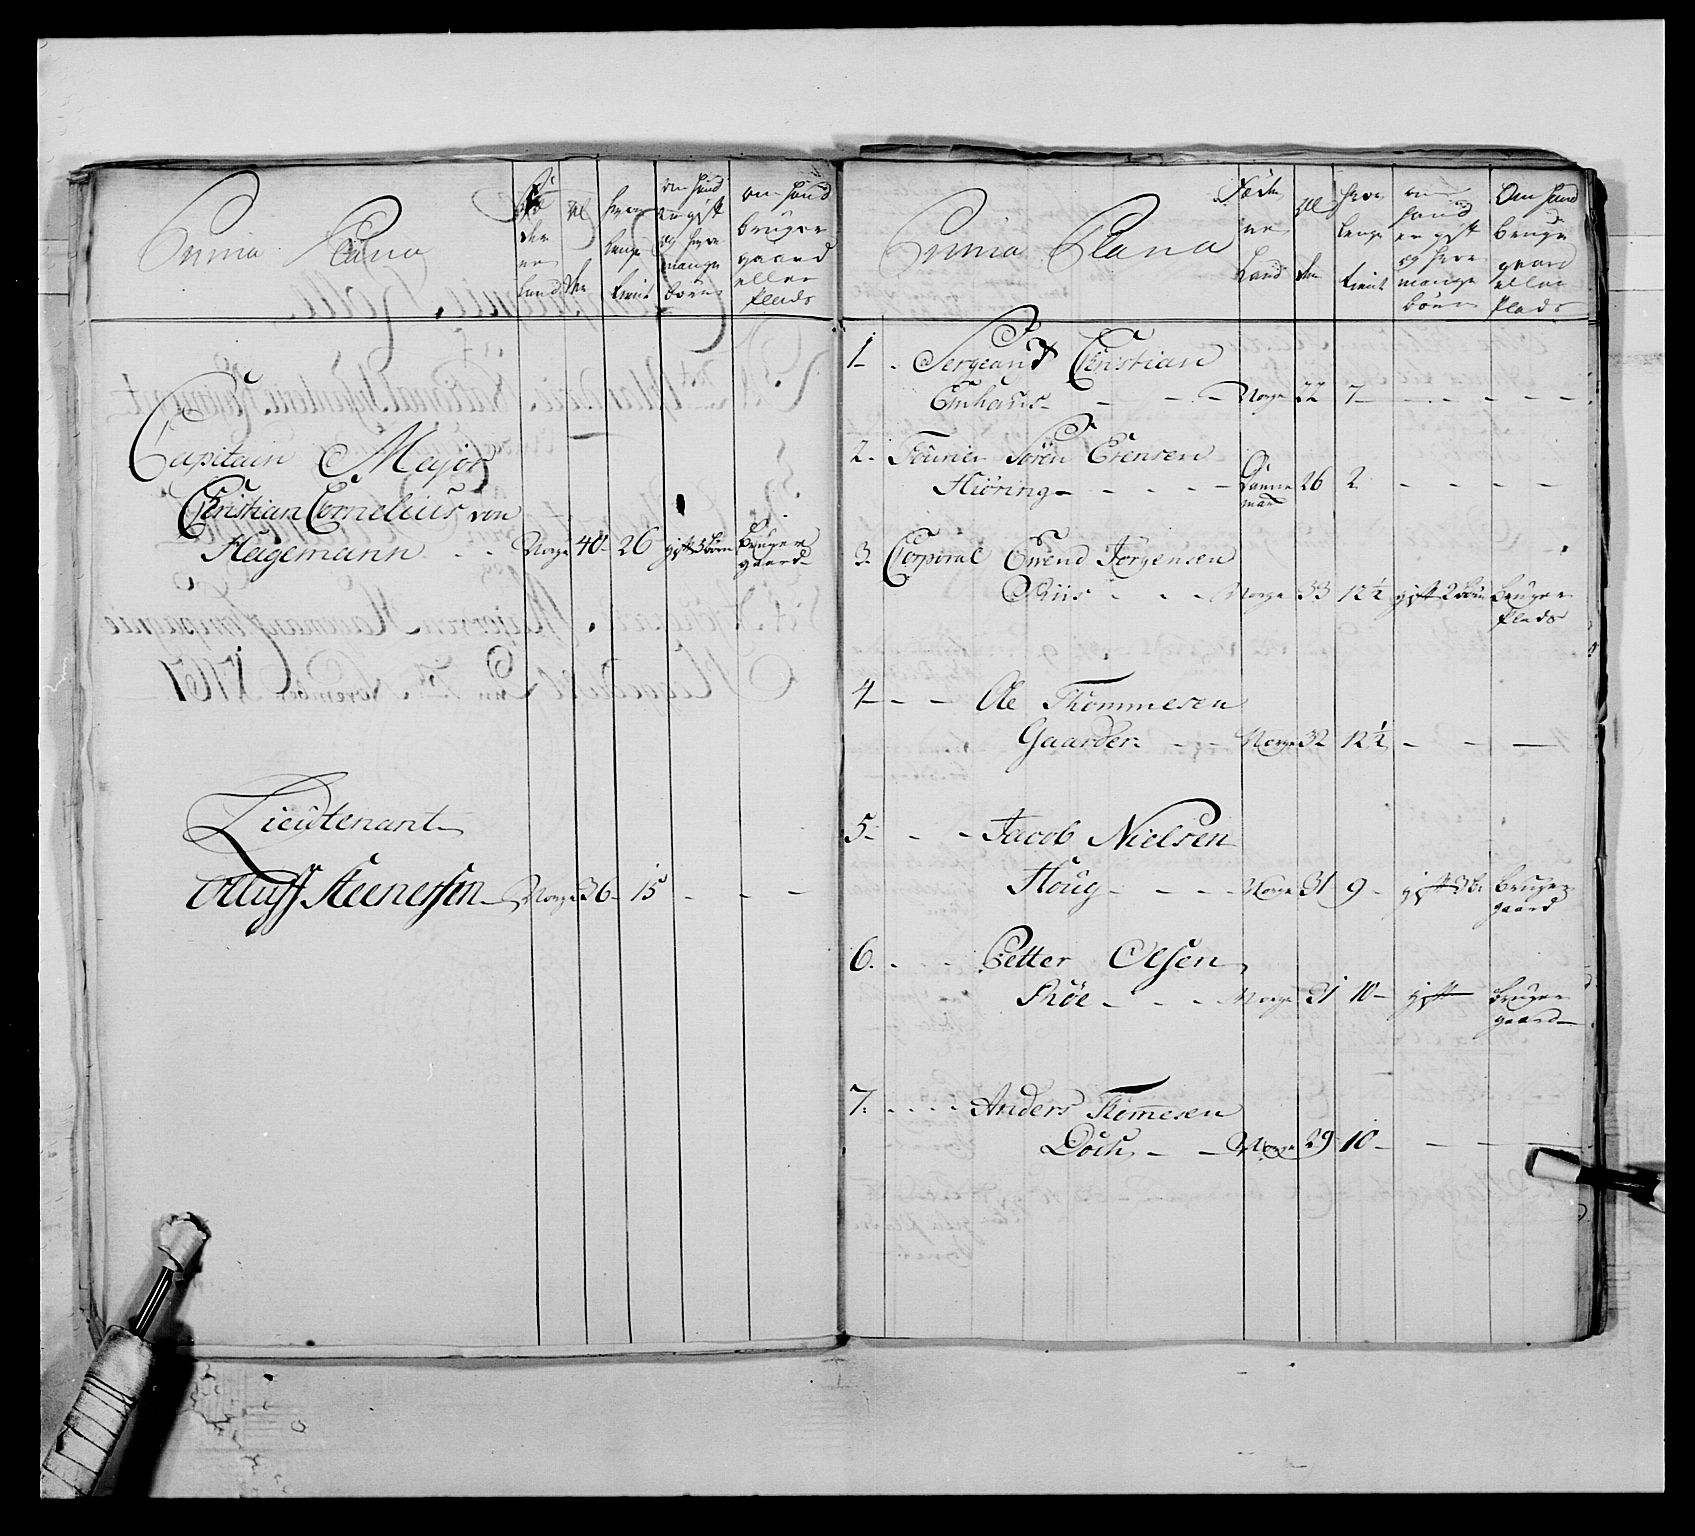 Prima Plana
Fø
de
ne
Land
Al
der
hvor
lenge
tient
om hand
er gift
og hvor
mange
børn
om hand
bruger
gaard
eller
Plads
Capitain Major
Christian Cornelius von
Hagemann - - Norge 40 - 26 gift 3 børn bruger
gaard
Lieutenant
Olluff Steenersen - Norge 36 - 15 - - -
Prima Plana
Føde
ne
Land
Al
der
hvor
lenge
tient
om
hand
er gift
og hvor
mange
børn
Om hand
bruge
gaard
eller
Plads
1 - . Sergeandt Christian
Emhaus - - - - Norge 22 7 - - - - -
2. Fourier Sören Erensen
Hiöring - - - - - Danne 26 2 - - - -
mark
3. Corporal Swend Jörgensen
Riis - - - Norge 33 12 ½ gift 2 børn bruger
Plads
4 - - - Ole Thommesen
Gaarder - - - Norge 32 12 ½ - - -
5 - - - Jacob Nielsen
Houg - - - - Norge 31 9 - gift 3 b. bruger
gaard
6. - - - Petter Olsen
- - - Norge 31 10 - gift bruger
gaard
7. - - - - Anders Tomesen
- - Norge 29 10 - - -